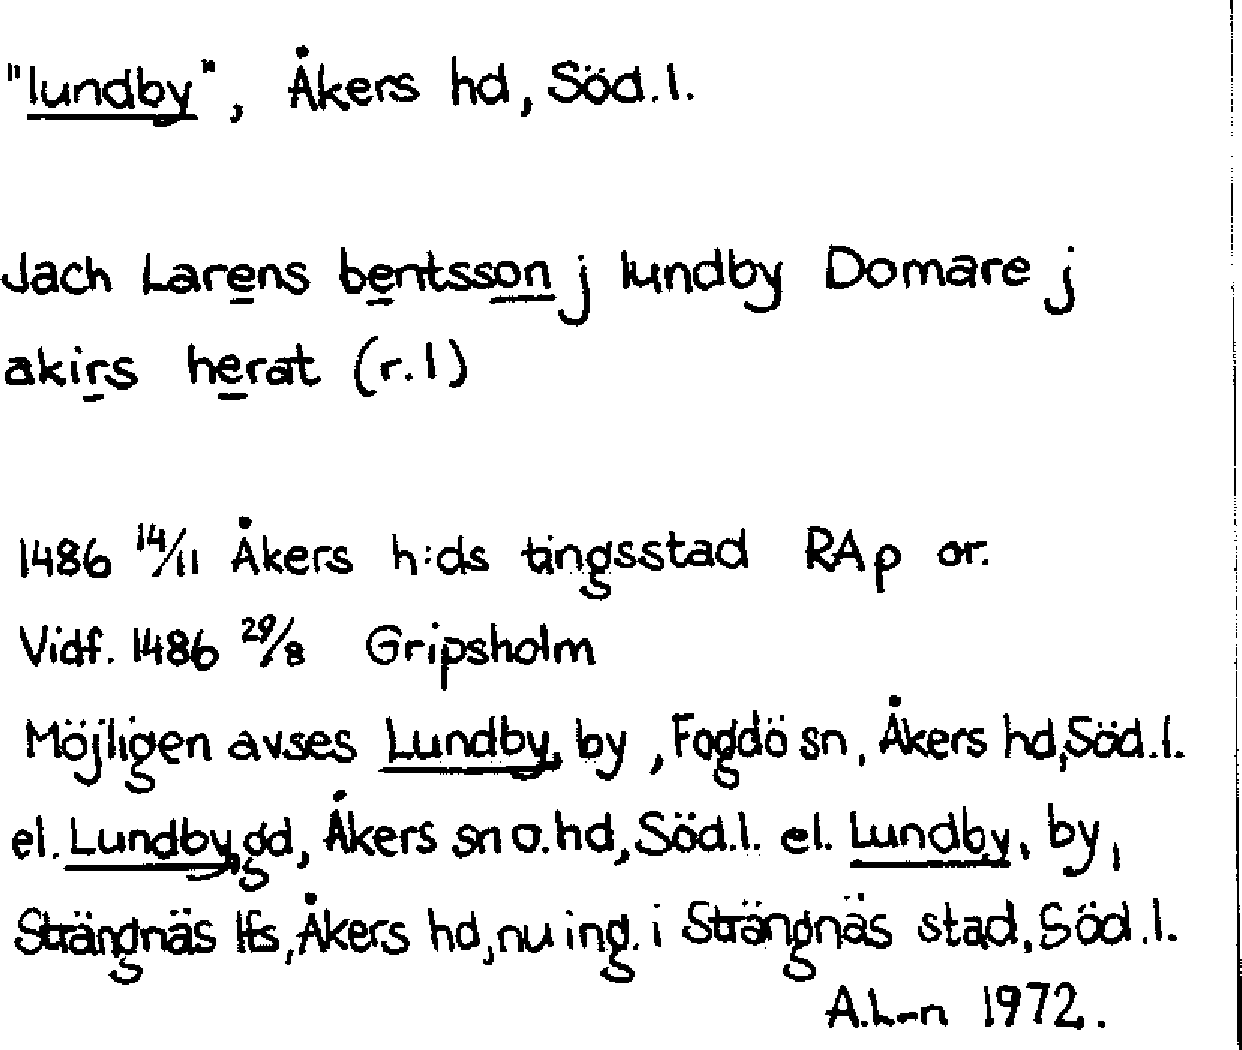 "lundby", Åkers hd, Söd.l.
Jach Larens bentsson j lundby Domare j
akirs herat (r.1)
1486 14/11 Åkers h:ds tingsstad RAp or.
Vidf. 1486 29/8 Gripsholm
Möjligen avses Lundby, by, Fogdö sn, Åkers hd, Söd.l.
el. Lundby, gd, Åkers sn o. hd, Söd.l. el. Lundby, by,
Strängnäs lfs, Åkers hd, nu ing. i Strängnäs stad, Söd.l.
A.L-n 1972.